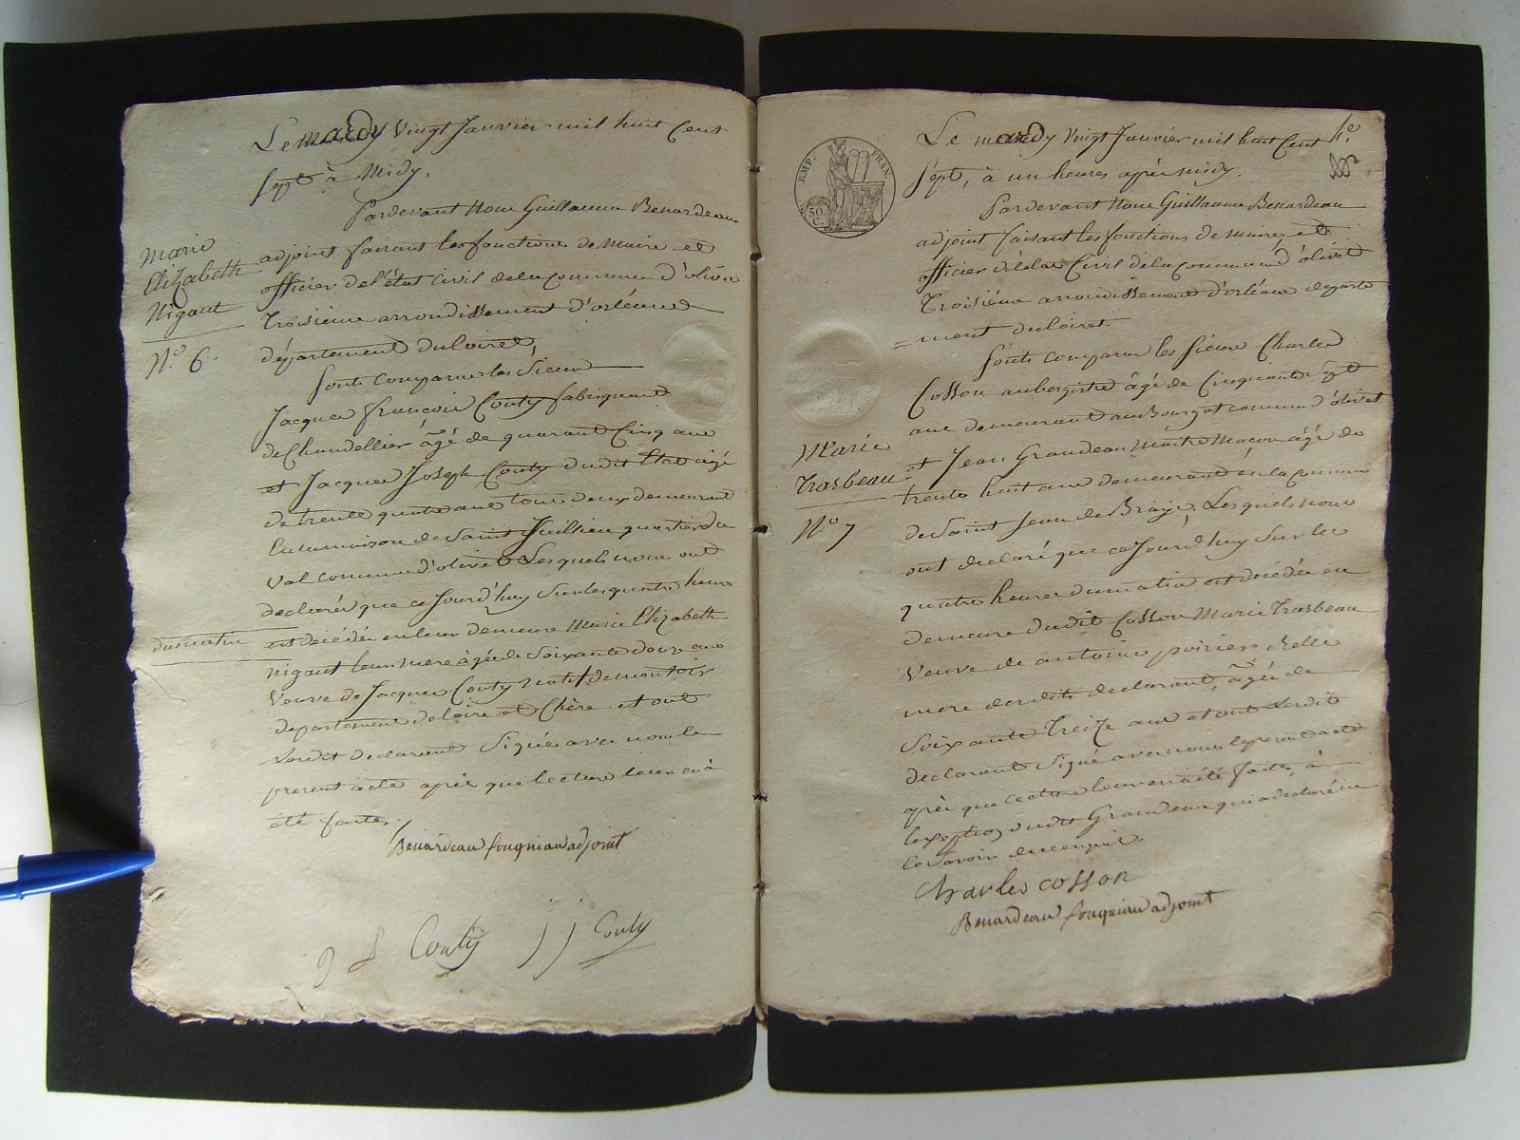 Le mardy Vingt Janvier mil huit Cent
Sept à Midy.
Pardevant Nous Guillaume Benardeau
adjoint faisant les fonctions de Maire et
officier de l'état Civil de la Commune d'olivet
Troisieme arrondissement d'orléans
département du loiret,
Marie
Elizabeth
Nigaut
N.º 6.
sonts comparus les Sieurs
Jacques françois Couty fabriquant
de Chandellier âgé de quarant Cinq ans
et Jacques Joseph Couty dudit Etat âgé
de trente quatre ans tous deux demeurant
en la maison de Saint Juillien quartier du
Val commune d'olivet Lesquels nous ont
declarés que ce Jourd'huy Sur les quatre heures
du matin est décédée en leur demeure Marie Elizabeth
nigaut leur mere âgée de Soixante douze ans
Veuve de Jacques Couty
departement de loire et Chère et ont
Lesdit declarant Signés avec nous le
present acte après que lecture leur en à
été faite.
Benardeau fougniau adjoint
J f Couty J J Couty
EMP. FRAN.
50 C.
Le mardy Vingt Janvier mil huit Cent
Sept, à un heures après midy.
Pardevant Nous Guillaume Benardeau
adjoint faisant les fonctions de Maire, et
officier de l'état Civil de la Commune d'olivet
Troisième arrondissement d'orléans departe
=ment du loiret.
Sonts comparus les Sieurs Charles
Cosson aubergiste âgé de Cinquante sept
ans demeurant au Bourg et commune d'olivet
Marie
Trasbeau
N.º 7
et Jean Grandeau Maitre Macon âgé de
trente huit ans demeurant en la Commune
de Saint Jean de Braye, Lesquels nous
ont declaré que ce Jourd'huy Sur les
quatre heures du matin est décédée en
demeure dudit Cosson Marie Trasbeau
Veuve de antoine poirier Belle
mere desdits declarant, âgée de
Soixante Treize ans et ont Lesdits
declarant Signé avec nous le present acte
après que lecture leur en à été faite, à
lexeption dudit Grandeau qui a declaré ne
le savoir de ce enquis.
Charles cosson
Benardeau fougniau adjoint